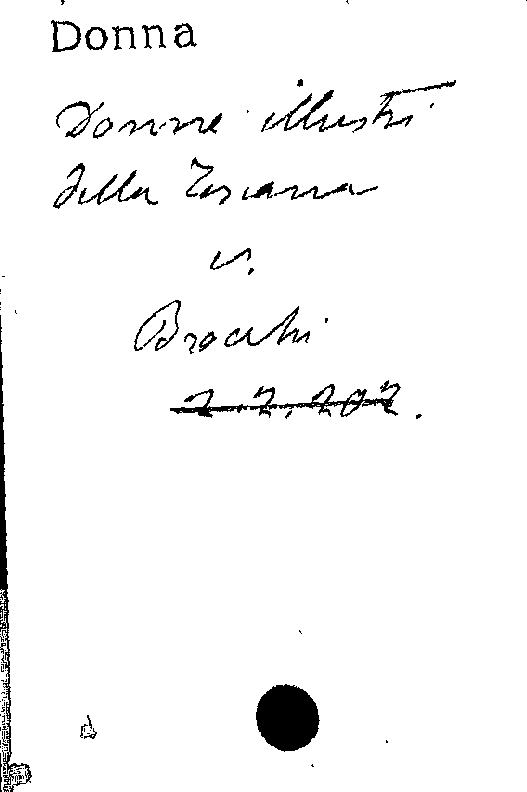 Donna
Donne illustri
della Toscana
v.
Brocchi
2.2.202.